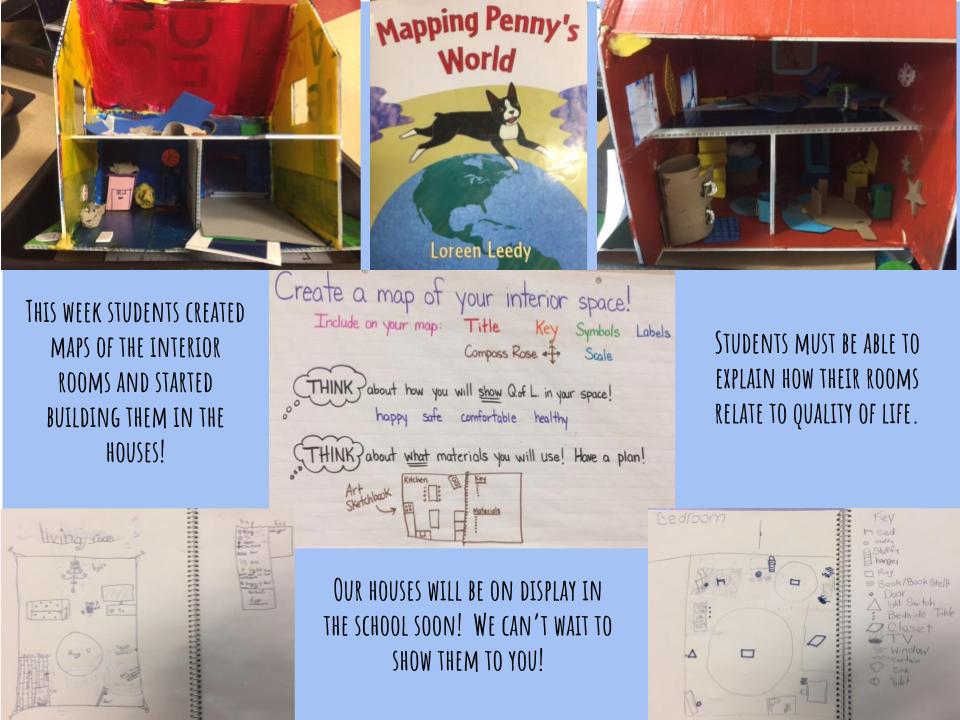 Mapping Penny's
World
Loreen Leedy
This week students created
maps of the interior
rooms and started
building them in the
houses!
Create a map of your interior space!
Include on your map: Title Key Symbols Labels
Compass Rose Scale
THINK about how you will show Q of L in your space!
happy safe comfortable healthy
THINK about what materials you will use! Have a plan!
Art
Sketchbook
Kitchen
Key
Materials
Students must be able to
explain how their rooms
relate to quality of life.
living
Our houses will be on display in
the school soon! We can't wait to
show them to you!
Bedroom
Key
Bed
Stuffy
hanger
Rug
Book/Book Shelf
Door
light Switch
Bedside Table
Closet
TV
Window
Curtain
Sink
Toilet